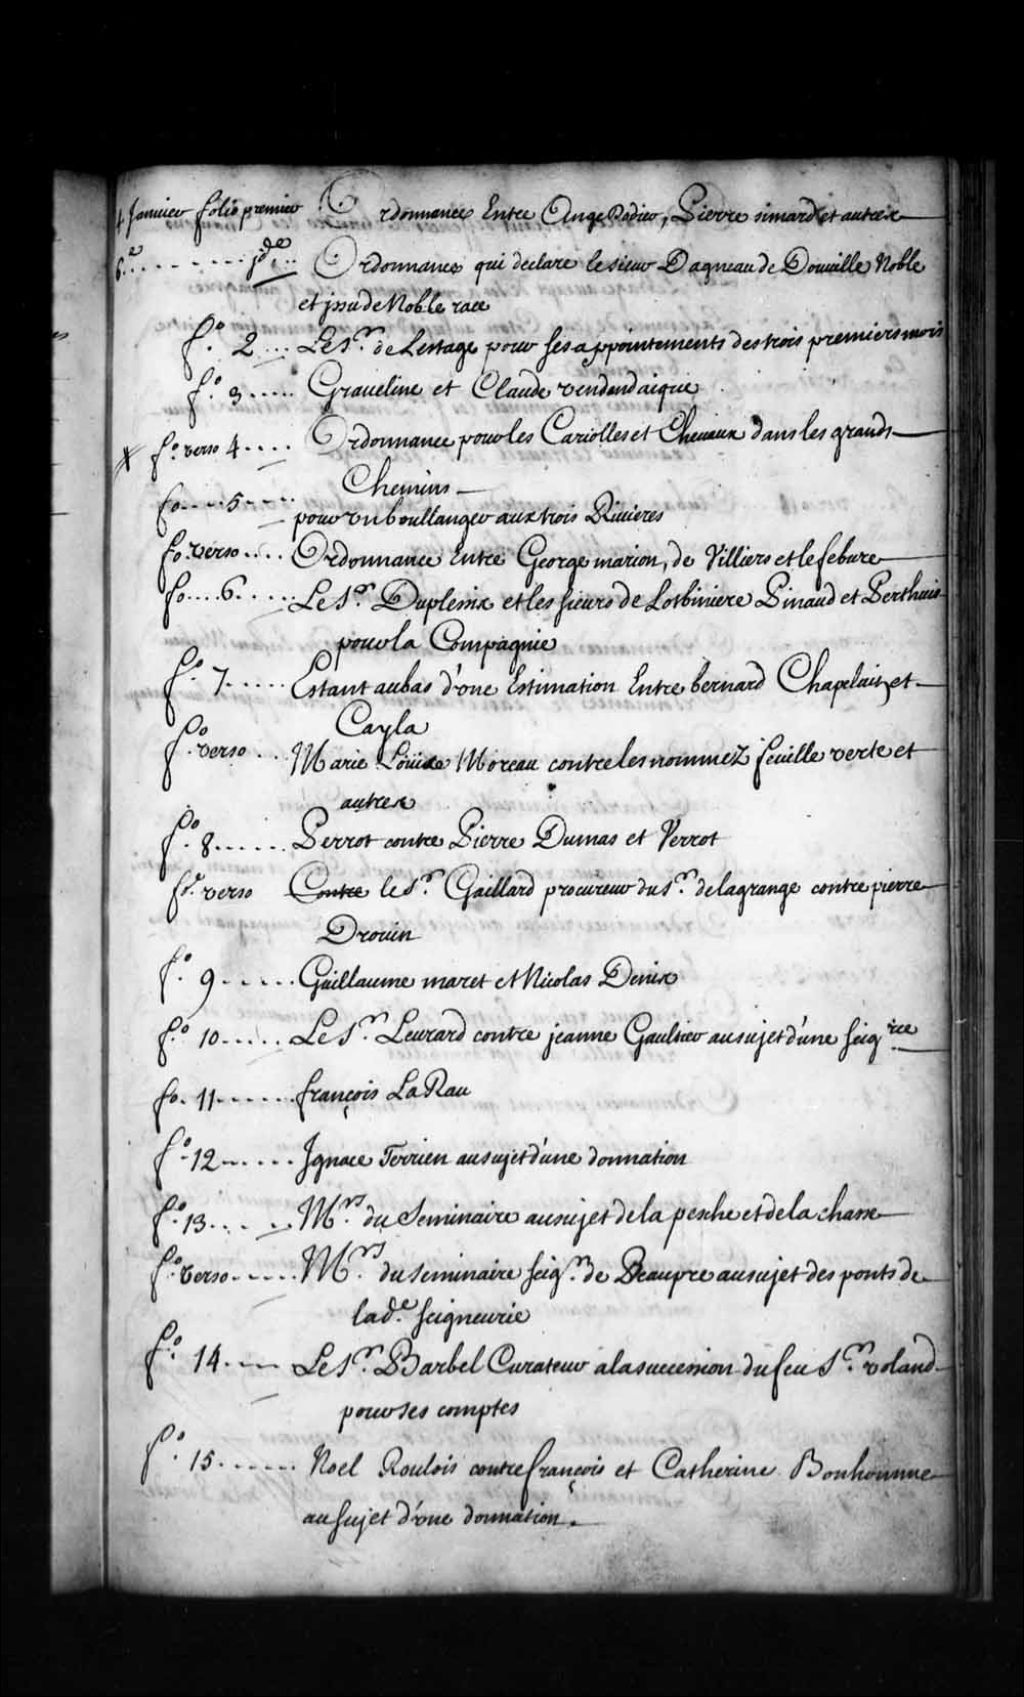 4 Janvier folio premier Ordonnances Entre Ange Rodier, Pierre simard et autres
6.e ........ jde... Ordonnance qui declare le sieur Dagneau de Douville Noble
et issu de Noble race
f.o 2 ... Le Sr. de Lestage pour ses appointements des trois premiers mois
f.o 3 ..... Graveline et Claude vendandaique
f.o verso 4 .... Ordonnance pour les Cariolles et Chevaux dans les grands
Chemins
fo....5.... pour un boullanger aux trois Rivieres
fo verso .... Ordonnance Entre George marion, de Villiers et lefebure
fo....6..... Le Sr. Duplessix et les sieurs de Lotbiniere Pinaud et Perthuis
pour la Compagnie
f.o 7..... Estant au bas d'une Estimation Entre bernard Chapelain et
Cayla
f.o verso ... Marie Loüise Moreau contre les nommez feuille verte et
autres
f.o 8...... Perrot contre Pierre Dumas et Verrot
fo. verso Contre le Sr. Gaillard procureur du Sr. delagrange contre pierre
Drouin
f.o 9..... Guillaume maret et Nicolas Denis
f.o 10..... Le Sr. Levrard contre jeanne Gaultier au sujet d'une seigrie
fo. 11...... françois La Rau
f.o 12...... Ignace Terrien au sujet d'une donnation
f.o 13.... Mrs. du Seminaire au sujet de la pesche et de la chasse
f.o verso..... Mrs. du Seminaire seigrs de Beaupre au sujet des ponts de
lade. seigneurie
f.o 14.... Le Sr. Barbel Curateur a la succession du feu Sr. voland
pour ses comptes
f.o 15...... Noel Roulois contre françois et Catherine Bonhomme
au sujet d'une donnation.